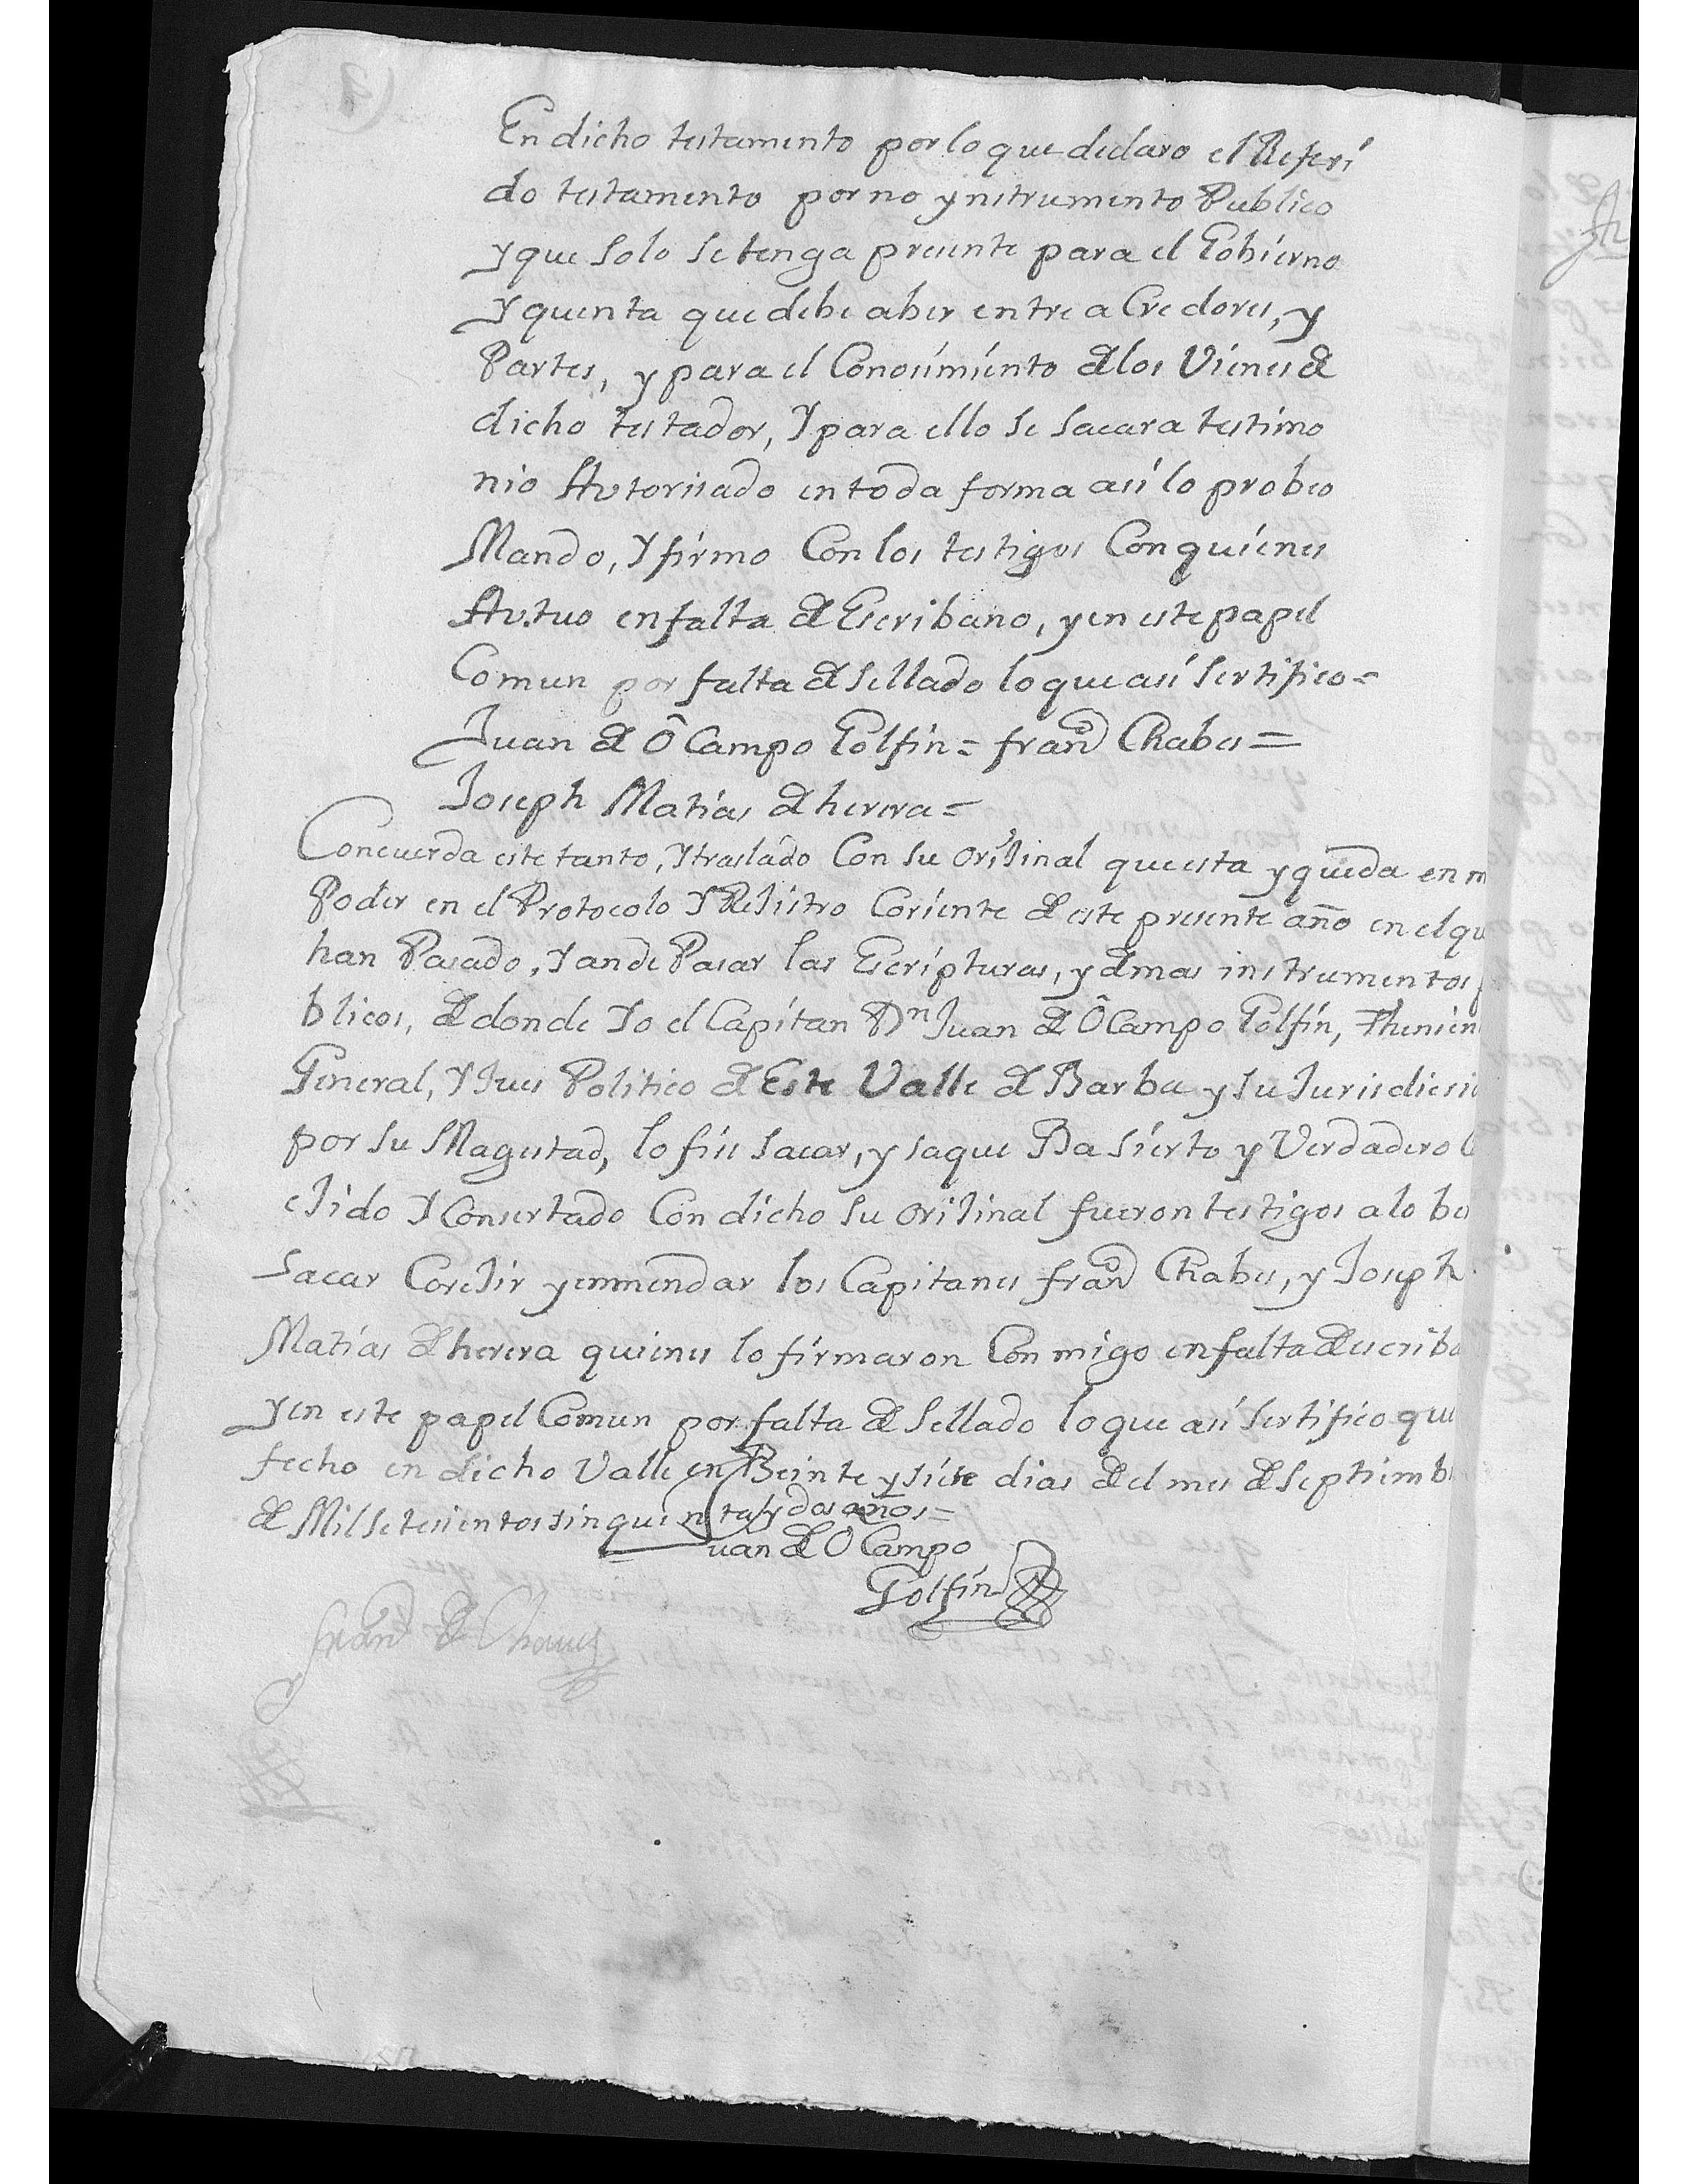 En dicho testamento por lo que declaro el Referi
do testamento por no ynstrumento Publico
y que solo se tenga presente para el Gobierno
Y quenta que debe aber entre aCredores, y
Partes, y para el Conosimiento de los Vienes de
dicho testador, Y para ello se sacara testimo
nio Autorisado en toda forma asi lo probeo
Mando, Y firmo Con los testigos Con quienes
Autuo en falta de Escribano, y en este papel
Comun por falta de sellado lo que asi sertifico =
Juan de OCampo Golfin = franco Chabes =
Joseph Matias de herera =
Concuerda este tanto, Y traslado Con su oriJinal que esta y queda en m
Poder en el Protocolo Y ReJistro Coriente de este presente año en el qu
han Pasado, Y an de Pasar las Escripturas, y demas instrumentos
blicos, de donde Yo el Capitan Dn Juan de OCampo Golfin, Thenien
General, Y Jues Politico de Este Valle de Barba y su Jurisdicsio
por su Magestad, lo fise sacar, y saque Ba sierto y Verdadero
eJido Y Consertado Con dicho su oriJinal fueron testigos a lo be
sacar CoreJir y enmendar los Capitanes franco Chabes, y Joseph
Matias de herera quienes lo firmaron Conmigo en falta de escriba
y en este papel Comun por falta de sellado lo que asi sertifico que
fecho en dicho Valle en Beinte y siete dias del mes de septiemb
de Mil setesientos sinquenta y dos años =
Juan de OCampo
Golfin
Franco de Chaues